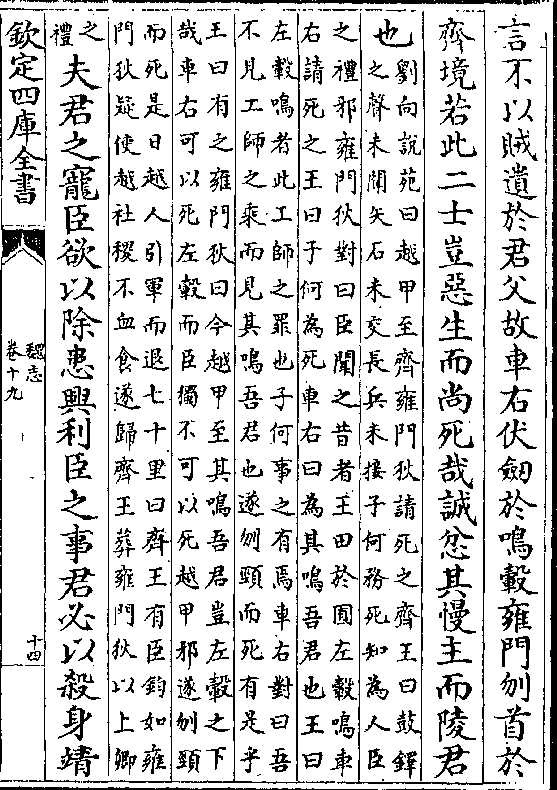 言不以賊遺於君父故車右伏劒於鳴轂雍門刎首於
齊境若此二士豈惡生而尚死哉誠忿其慢主而陵君
也劉向説苑曰越甲至齊雍門狄請死之齊王曰鼓鐸
之聲未聞矢石未交長兵未接子何務死知為人臣
之禮邪雍門狄對曰臣聞之昔者王田於囿左轂鳴車
右請死之王曰子何為死車右曰為其鳴吾君也王曰
左轂鳴者此工師之罪也子何事之有焉車右對曰吾
不見工師之乗而見其鳴吾君也遂刎頸而死有是乎
王曰有之雍門狄曰今越甲至其鳴吾君豈左轂之下
哉車右可以死左轂而臣獨不可以死越甲邪遂刎頸
而死是日越人引軍而退七十里曰齊王有臣鈞如雍
門狄疑使越社稷不血食遂歸齊王葬雍門狄以上卿
之禮夫君之寵臣欲以除患興利臣之事君必以殺身靖
欽定四庫全書
魏志
卷十九
十四